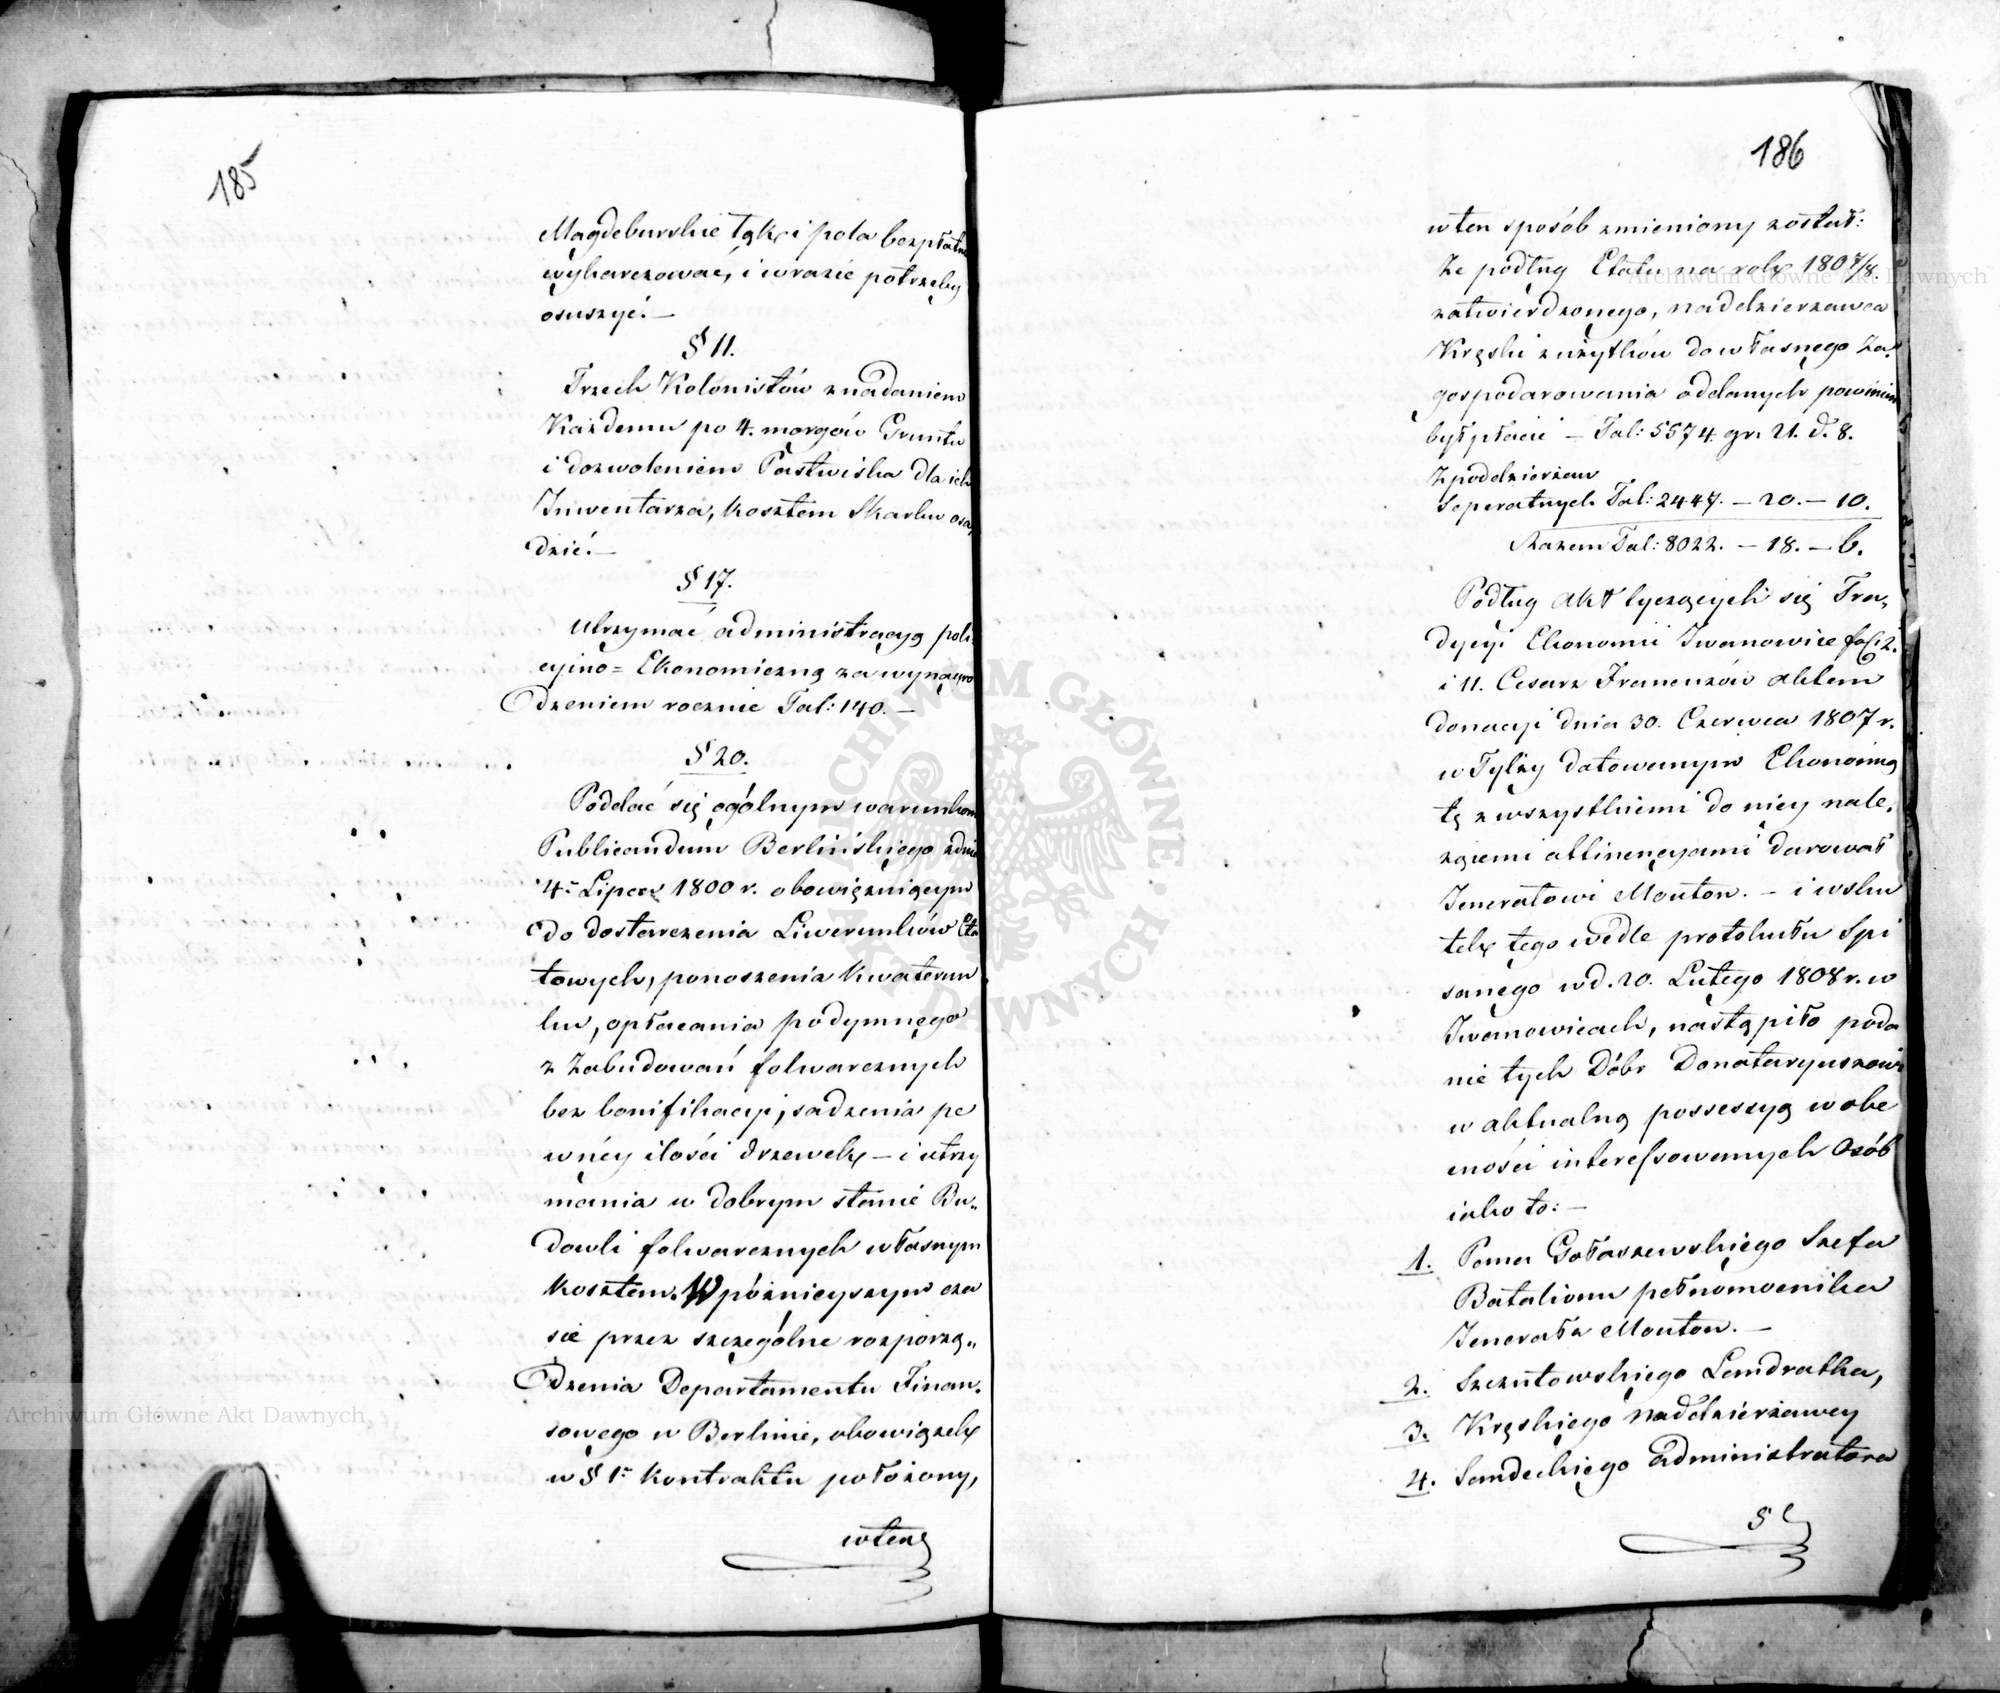 185
Magdeburskie łąkę i pola bezpłatnie
wykarczować, i wrazie potrzeby
osuszyć. —
§ 11.
Trzech Kolonistów z nadaniem
Każdemu po 4. morgów Gruntu
i dozwoleniem Pastwiska dla ich
Inwentarza, kosztem Skarbu osa„
dzić. —
§ 17.
Utrzymać administracyą poli
cyino = Ekonomiczną za wynagro
dzeniem rocznie Tal: 140. —
§ 20.
Poddać się ogólnym warunkom
Publicandum Berlińskiego z dnia
4. Lipca 1800 r. obowięzuiącym
do dostarczenia Liwerunków Eta
towych, ponoszenia kwaterun
ku, opłacania podymnego
z Zabudowań folwarcznych
bez bonifikacyi, sadzenia pe
wnéy ilości drzewek — i utrzy
mania w dobrym stanie Bu„
dowli folwarcznych własnym
kosztem. W późnieyszym cza
sie przez szczególne rozporzą„
dzenia Departamentu Finan„
sowego w Berlinie, obowiązek
w § 1 kontraktu położony,
wten
186
wten sposób zmieniony został:
Że podług Etatu na rok 1807/8.
zatwierdzonego, naddzierzawca
Kręski z użytków do własnego za„
gospodarowania oddanych powinien
był płacić — Tal: 5574 gr. 21. d. 8.
Z poddzierżaw
Seperatnych Tal: 2447. — 20. — 10.
Razem Tal: 8022. — 18. — 6.
Podług akt tyczących się Tra„
dycyi Ekonomii Iwanowice fol: 2.
i 11. Cesarz Francuzów aktem
donacyi dnia 30. Czerwca 1807 r.
w Tylży datowanym Ekonomią
tę z wszystkiemi do niey nale„
żącemi attinencyami darował
Jenerałowi Mouton. — i w sku
tek tego wedle protokułu Spi
sanego w d. 20. Lutego 1808 r. w
Iwanowicach, nastąpiło poda
nie tych Dóbr Donataryuszowi
w aktualną possessyą w obe
cności interessowanych Osób
iako to: —
1. Pana Gołaszewskiego Szefa
Batalionu pełnomocnika
Jenerała Mouton. —
2. Szczutowskiego Landratha,
3. Kręskiego Naddzierżawcy
4. Sandeckiego administratora
Archiwum Główne Akt Dawnych
Archiwum Główne Akt Dawnych
ARCHIWUM GŁÓWNE AKT DAWNYCH